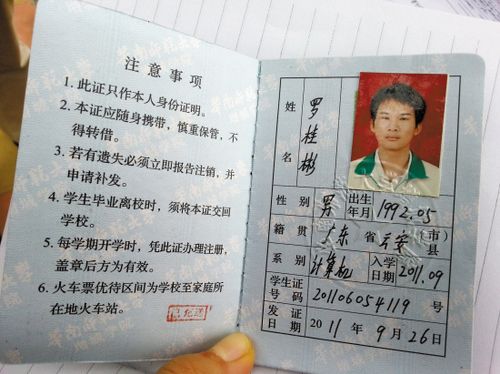 注意事项
1. 此证只作本人身份证明。
2. 本证应随身携带，慎重保管，不
得转借。
3. 若有遗失必须立即报告注销，并
申请补发。
4. 学生毕业离校时，须将本证交回
学校。
5. 每学期开学时，凭此证办理注册，
盖章后方为有效。
6. 火车票优待区间为学校至家庭所
在地火车站。
姓名 罗桂彬
性别 男 出生年月 1992.05
籍贯 广东 省 云安 市 县
系别 计算机 入学日期 2011.09
学生证号码 201106054119 号
发证日期 2011年9月26日